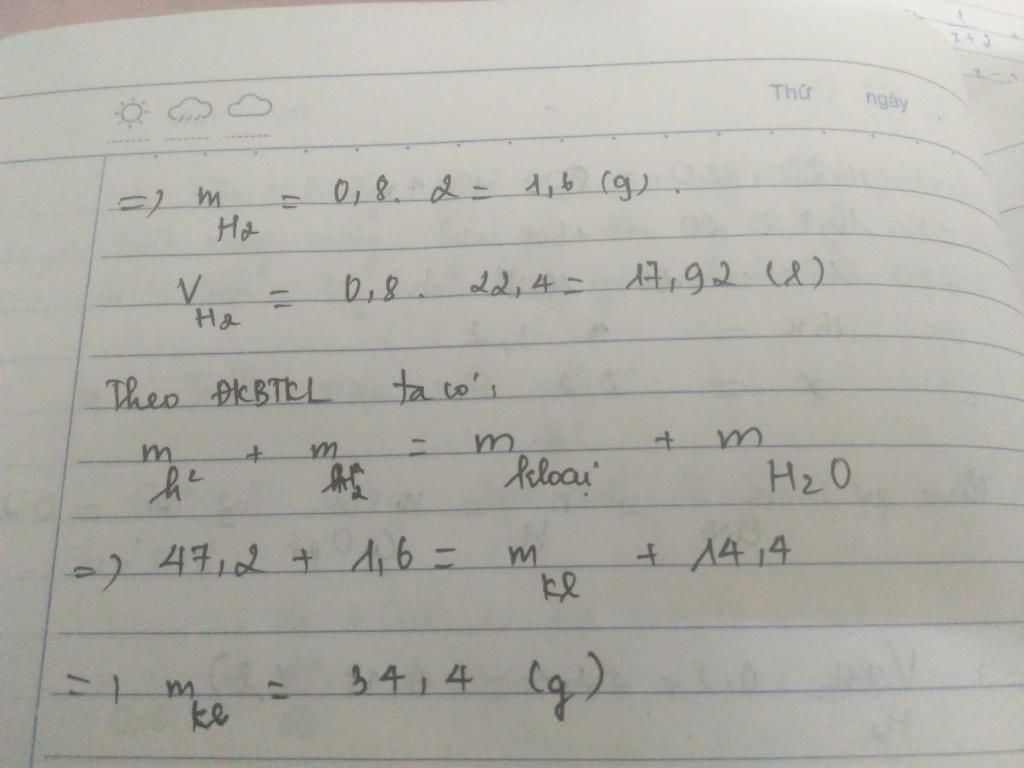 1
x+2 +
Thứ ngày
=> m H2 = 0,8. 2 = 1,6 (g).
V H2 = 0,8. 22,4 = 17,92 (l)
Theo ĐKBTKL ta có:
m h² + m H2 = m kloại + m H2O
=> 47,2 + 1,6 = m kl + 14,4
=> m kl = 34,4 (g)